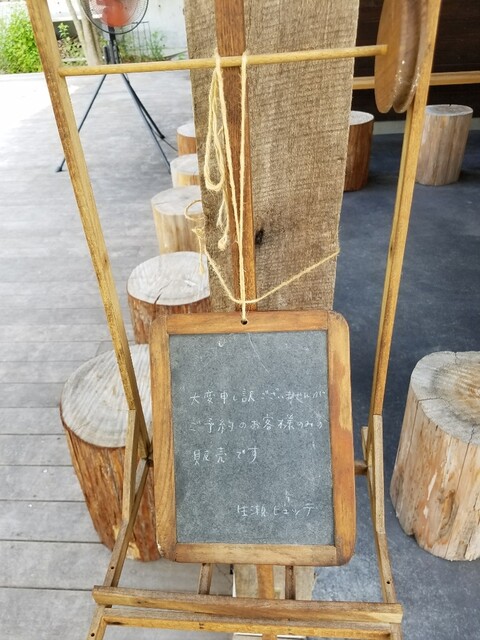 大変申し訳ございませんが
ご予約のお客様のみの
販売です
生瀬ヒュッテ